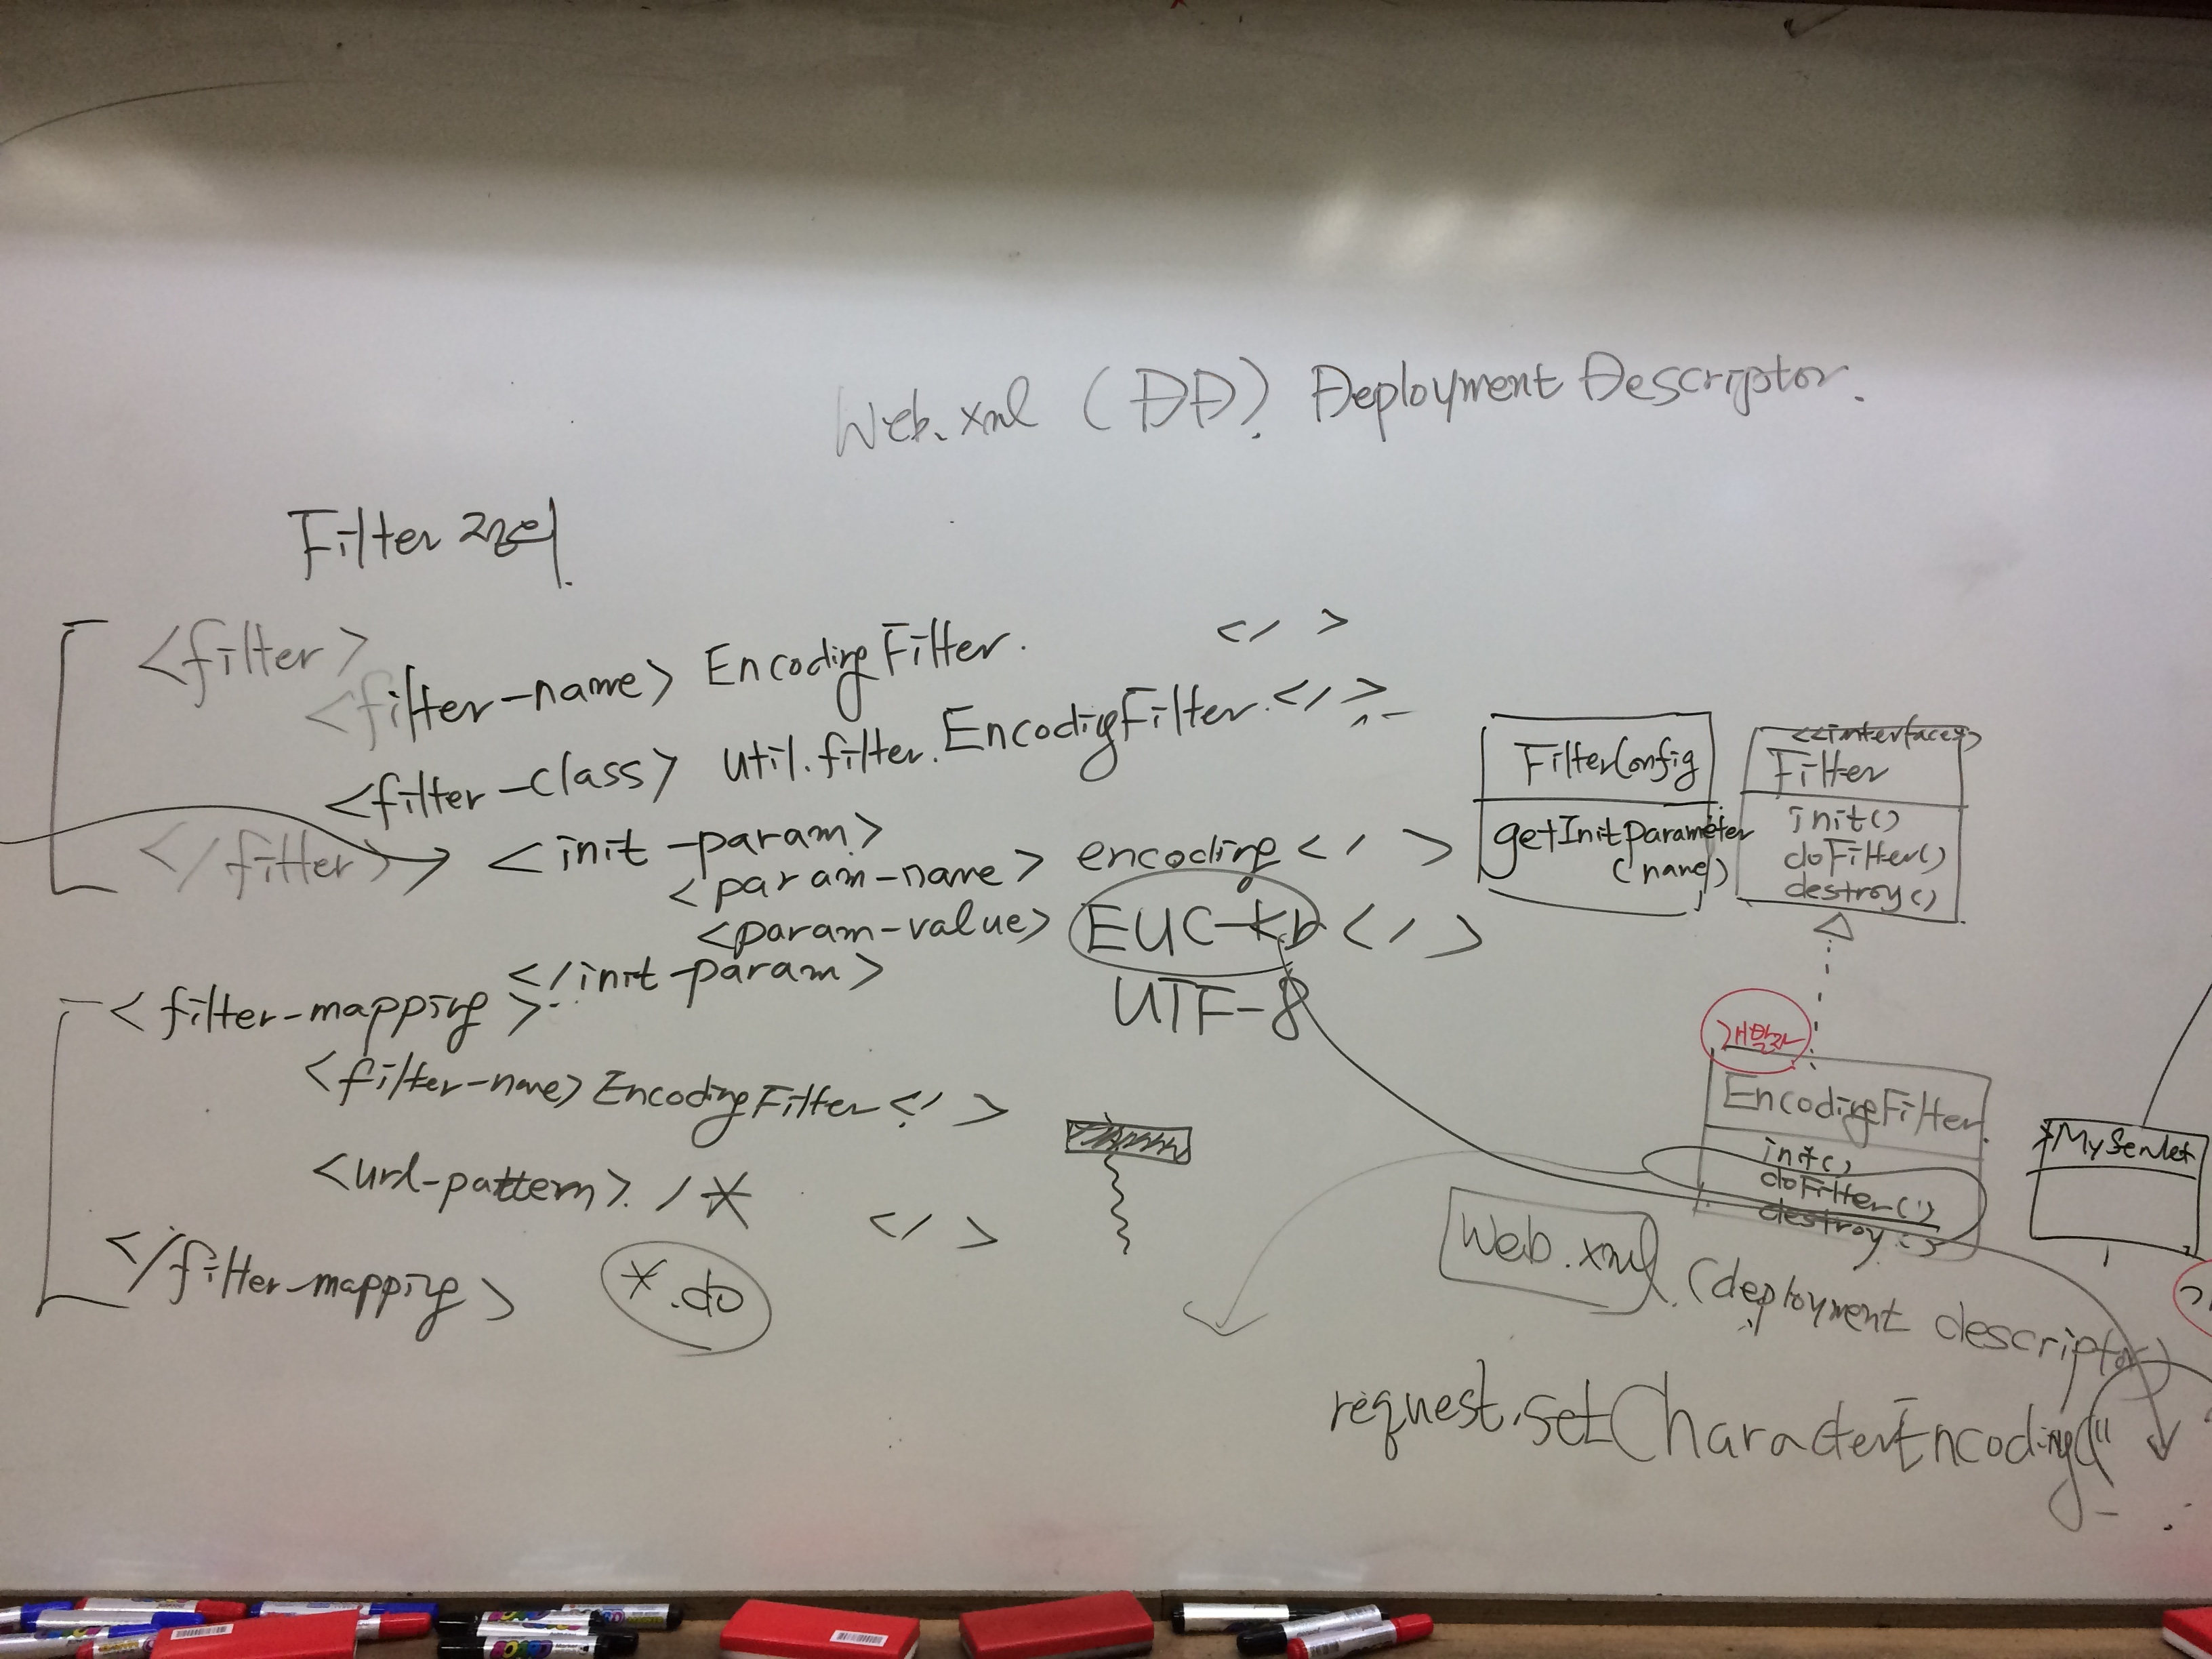 Web.xml (DD). Deployment Descriptor.
Filter 관리.
<filter>
<filter-name> EncodingFilter. </ >
<filter-class> util.filter.EncodingFilter. </ >
</filter>
<init-param>
<param-name> encoding </ >
<param-value> EUC-kr </ >
UTF-8
</init-param>
<filter-mapping>
<filter-name> EncodingFilter </ >
<url-pattern> /* </ >
</filter-mapping>
*.do
FilterConfig
getInitParameter
(name)
<<interface>>
Filter
init()
doFilter()
destroy()
개발자
EncodingFilter
init()
doFilter()
destroy()
*MyServlet
Web.xml. (deployment descriptor)
request.setCharacterEncoding("